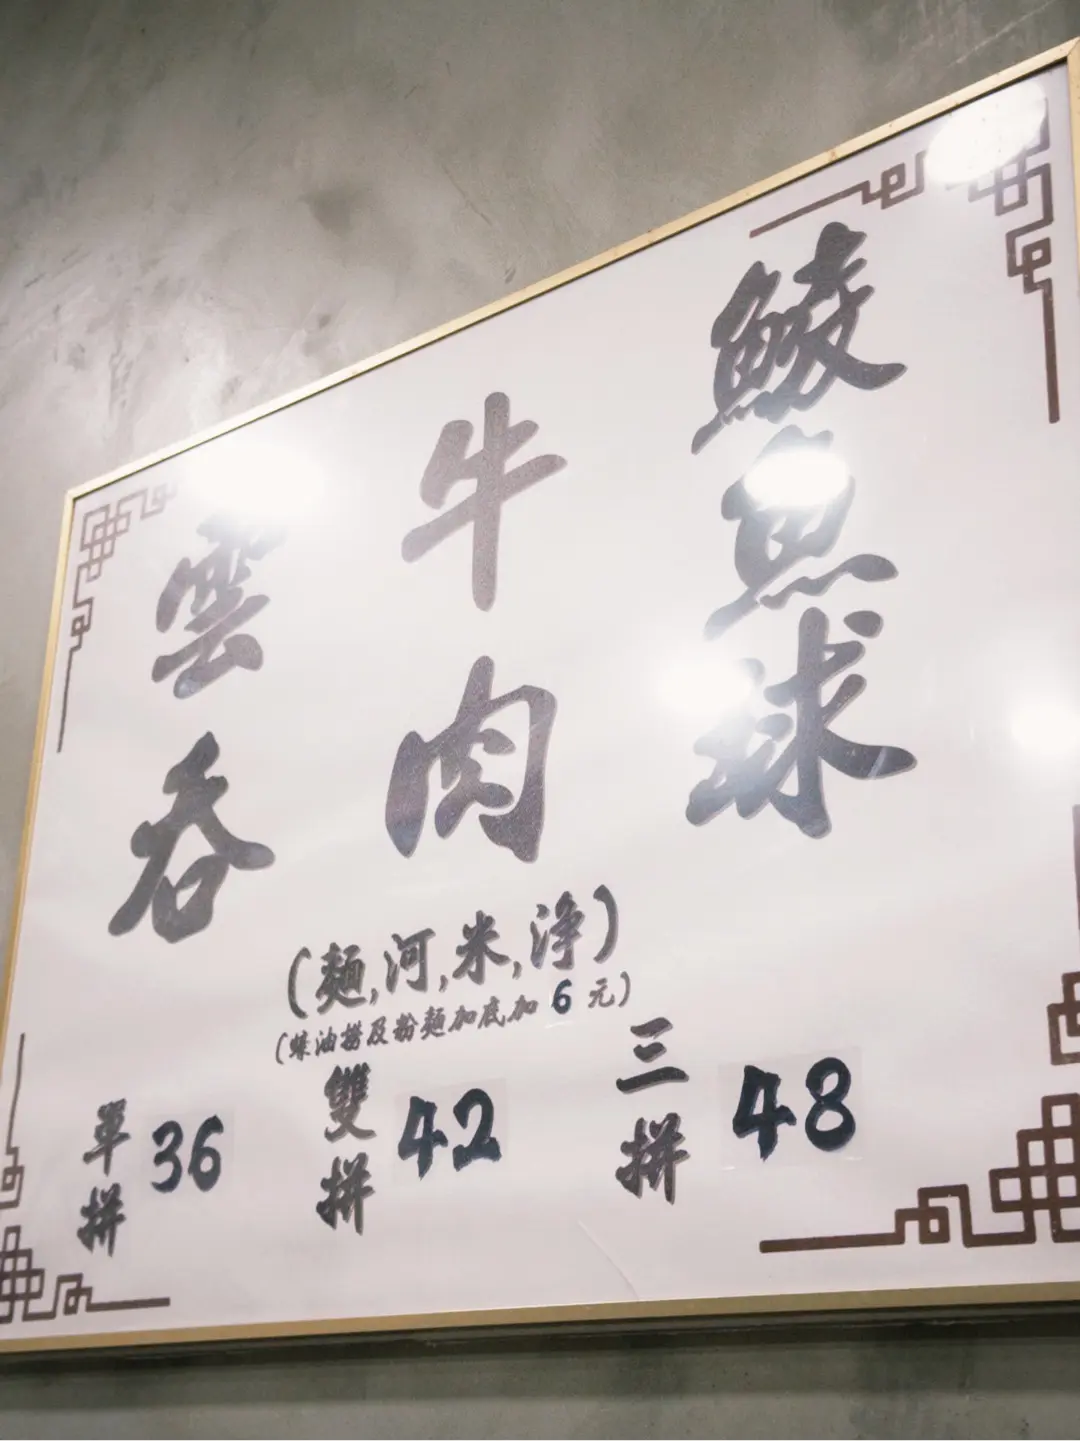 鯪魚球
牛肉
雲吞
(麵,河,米,淨)
(蠔油撈及粉麵加底加 6 元)
單拼 36
雙拼 42
三拼 48